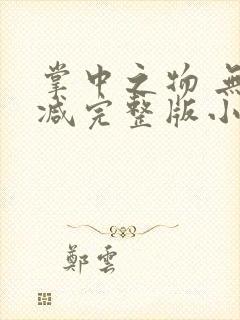 掌中之物 無
减完整版小
鄭雲